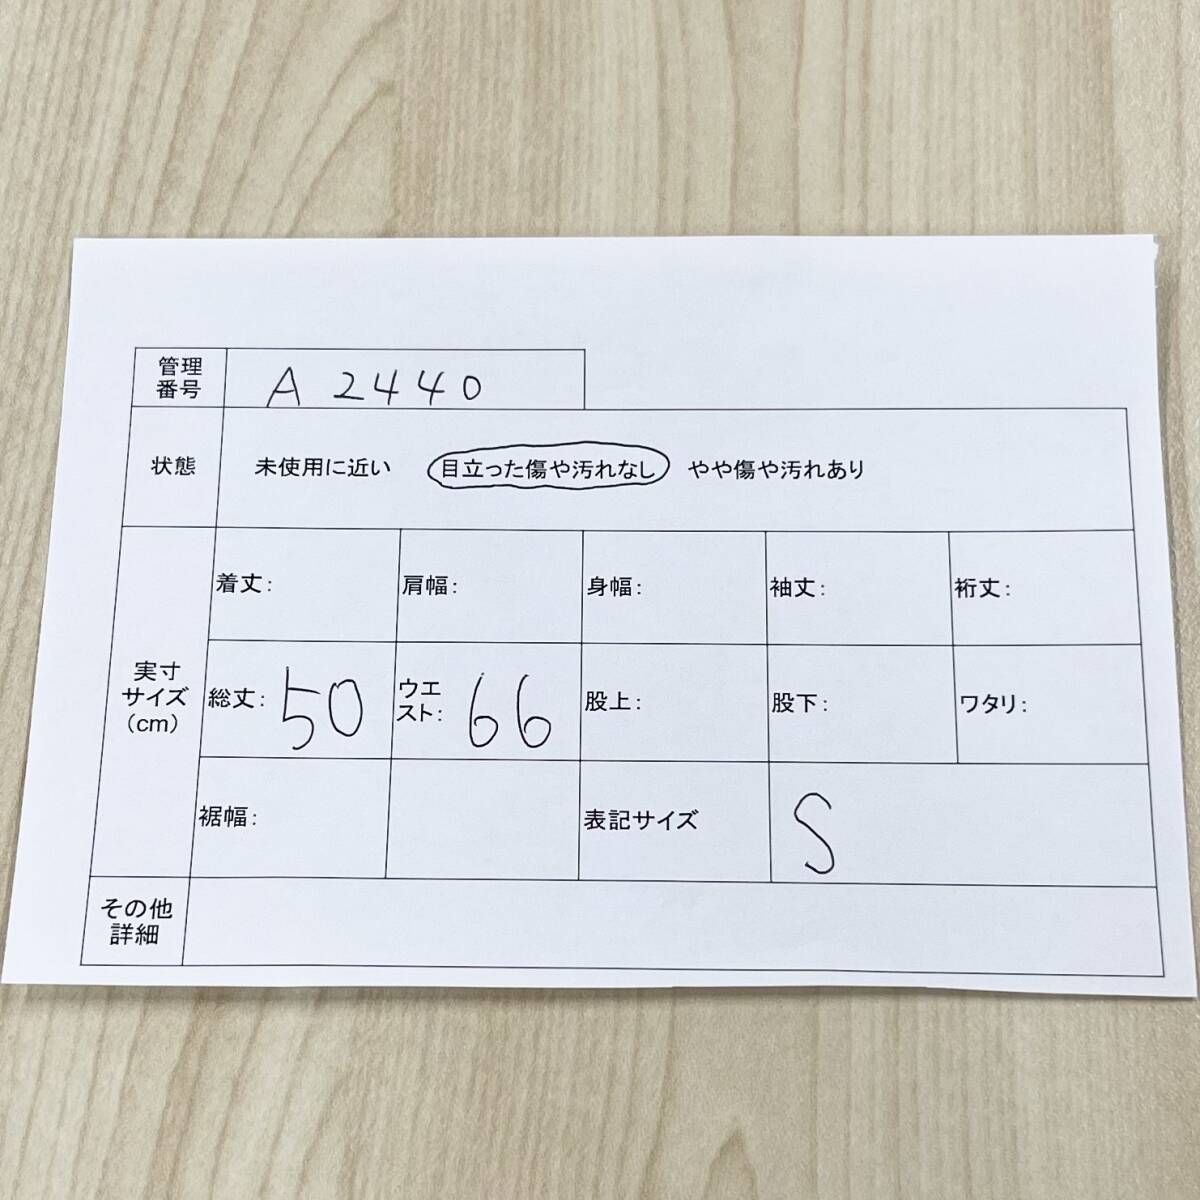 管理
番号
A 2440
状態
未使用に近い 目立った傷や汚れなし やや傷や汚れあり
実寸
サイズ
(cm)
着丈: 肩幅: 身幅: 袖丈: 裄丈:
総丈: 50
ウエ
スト: 66
股上: 股下: ワタリ:
裾幅:
表記サイズ S
その他
詳細